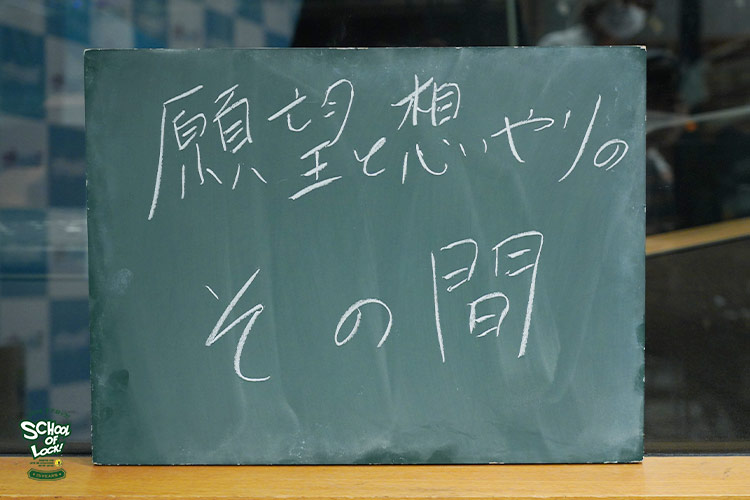 願望と想いやりの
その間
SCHOOL
OF
LOCK!